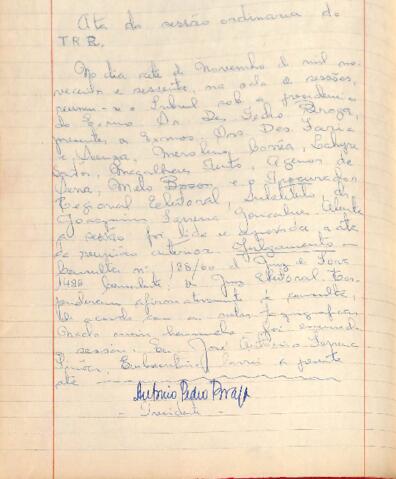 Ata da sessão ordinaria do
T R E.
No dia sete de Novembro de mil no-
vecento e sessenta, na sala de sessões,
reuniu-se o Tribunal sob a presidencia
do Exmo. Dr. Des. Pedro Braga,
presente a Exmos. Drs. Des. Faria
e Souza, Merolino Corrêa,
Magalhães Pinto, Agenor de
Sena, Melo e o Procurador
Regional Eleitoral, Substituto, dr.
Joaquim Ferreira Gonçalves. Aberta
a sessão foi lida e aprovada a ata
da reunião anterior. Julgamento -
Consulta nº 188/60 de Juiz de Fora
Consulente: o Juiz Eleitoral. Res-
ponderam afirmativamente à consulta,
de acordo com as notas taquigraficas.
Nada mais havendo, foi encerrada
a sessão. Eu José Antônio
lavrei a presente
ata
Antonio Pedro Braga
- Presidente -